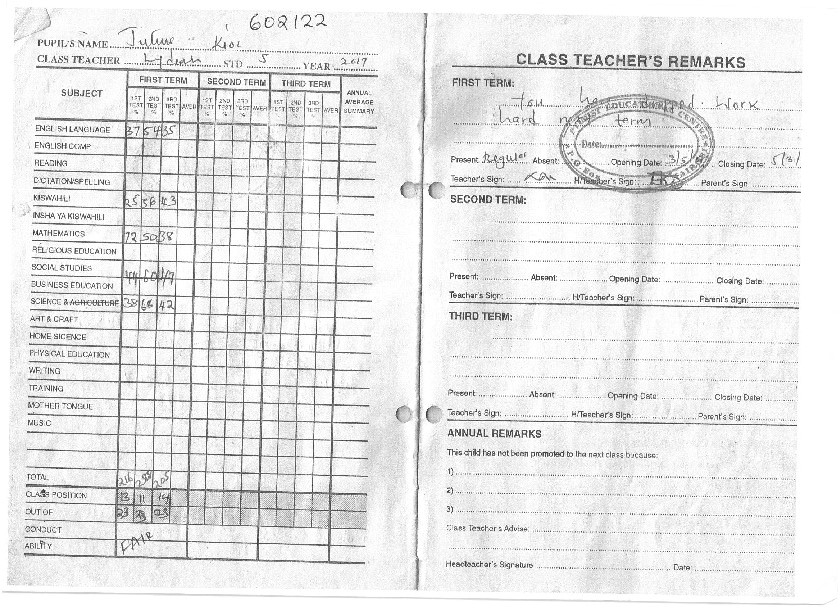 602122
PUPIL'S NAME
CLASS TEACHER STD 5 YEAR 2017
SUBJECT FIRST TERM SECOND TERM THIRD TERM ANNUAL AVERAGE SUMMARY
1ST TEST % 2ND TEST % 3RD TEST % AVER 1ST TEST % 2ND TEST % 3RD TEST % AVER 1ST TEST % 2ND TEST % 3RD TEST % AVER
ENGLISH LANGUAGE 37 54 35
ENGLISH COMP
READING
DICTATION/SPELLING
KISWAHILI 25 56 43
INSHA YA KISWAHILI
MATHEMATICS 72 50 38
RELIGIOUS EDUCATION
SOCIAL STUDIES
BUSINESS EDUCATION
SCIENCE & AGRICULTURE 38 42
ART & CRAFT
HOME SICENCE
PHYSICAL EDUCATION
WRITING
TRAINING
MOTHER TONGUE
MUSIC
TOTAL 216
CLASS POSITION 13 11
OUT OF 23 23 23
CONDUCT
ABILITY FAIR
CLASS TEACHER'S REMARKS
FIRST TERM:
You dropped. Work
hard next term
Date:
Present: Regular Absent: Opening Date: 3/5/ Closing Date: 5/3/
Teacher's Sign: H/Teacher's Sign: Parent's Sign
SECOND TERM:
Present: Absent: Opening Date: Closing Date:
Teacher's Sign: H/Teacher's Sign: Parent's Sign:
THIRD TERM:
Present: Absent Opening Date: Closing Date:
Teacher's Sign: H/Teacher's Sign: Parent's Sign:
ANNUAL REMARKS
This child has not been promoted to the next class because:
1)
2)
3)
Class Teacher's Advise:
Headteacher's Signature Date: